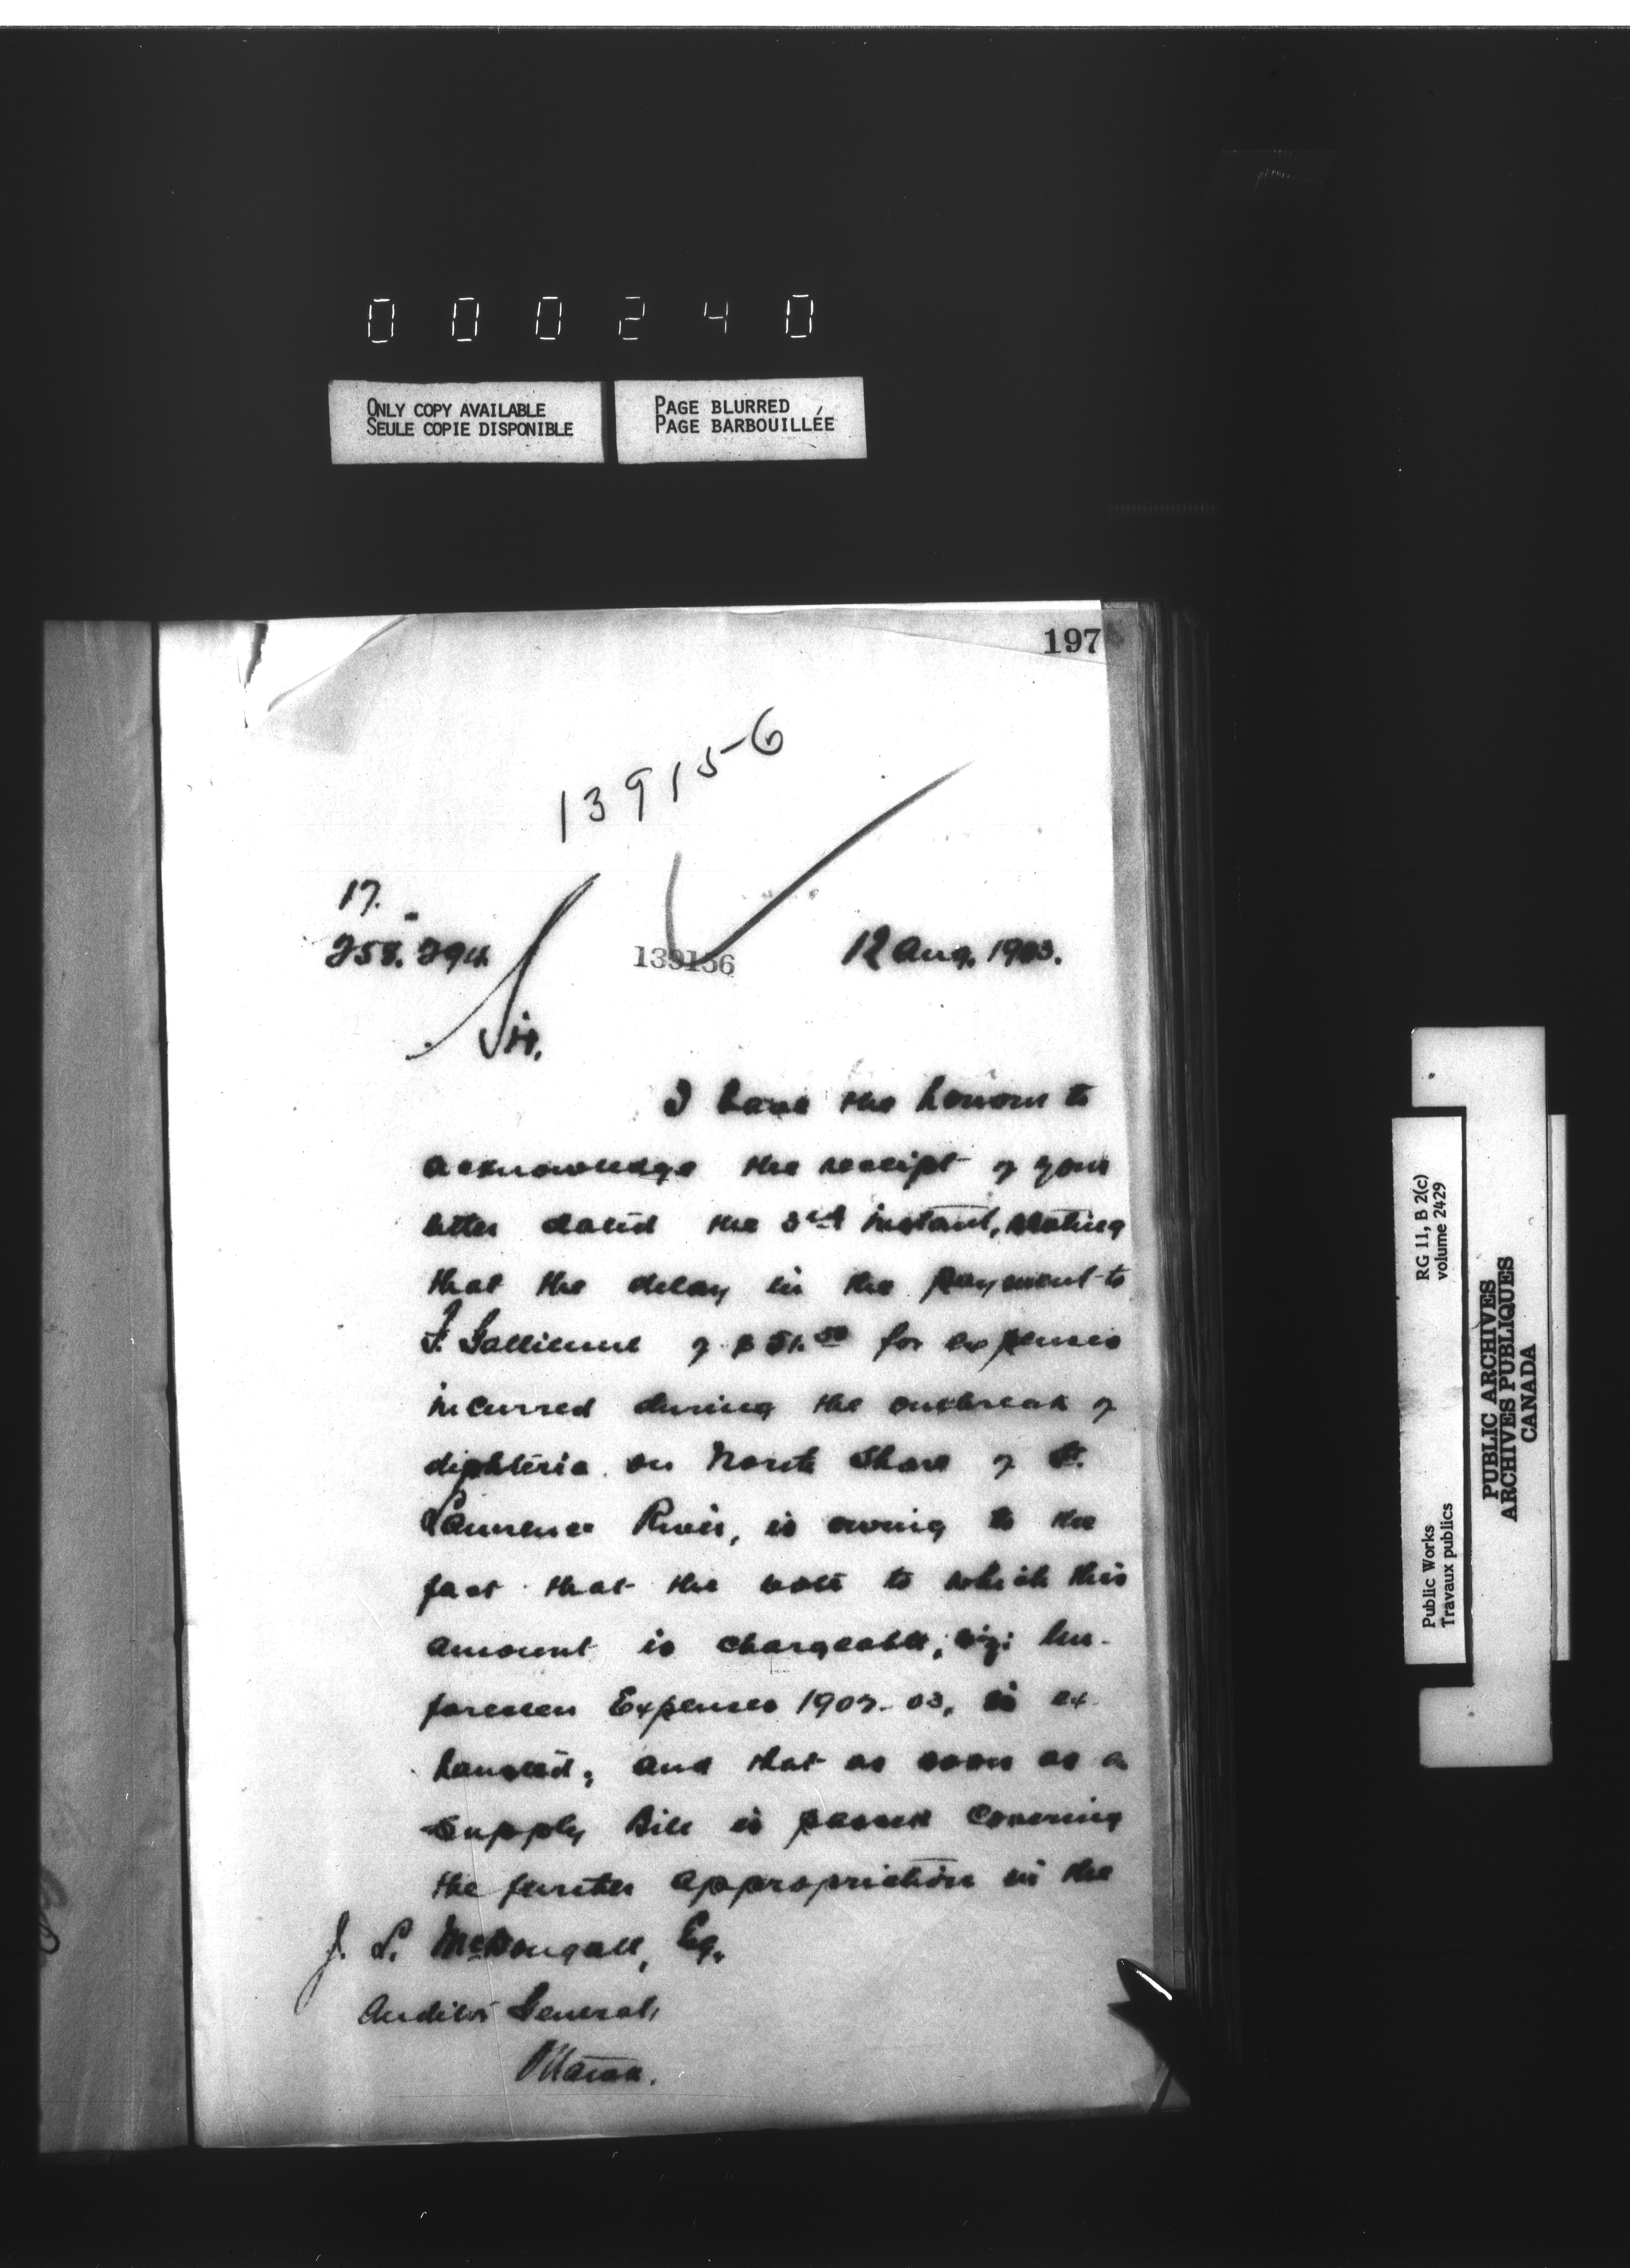 000240
ONLY COPY AVAILABLE
SEULE COPIE DISPONIBLE
PAGE BLURRED
PAGE BARBOUILLÉE
197
139156
17.
258.294.
139156
12 Aug. 1903.
Sir,
I have the honour to
acknowledge the receipt of your
letter dated the 3rd instant, stating
that the delay in the payment to
F. Gallienne of $51.50 for expenses
incurred during the outbreak of
diphteria on North Shore of St.
Lawrence River, is owing to the
fact that the vote to which this
amount is chargeable, viz: Un-
foreseen Expenses 1902-03, is ex-
hausted, and that as soon as a
Supply Bill is passed covering
the further appropriation in the
J. L. McDougall, Esq.
Auditor General,
Ottawa.
RG 11, B 2(c)
volume 2429
Public Works
Travaux publics
PUBLIC ARCHIVES
ARCHIVES PUBLIQUES
CANADA